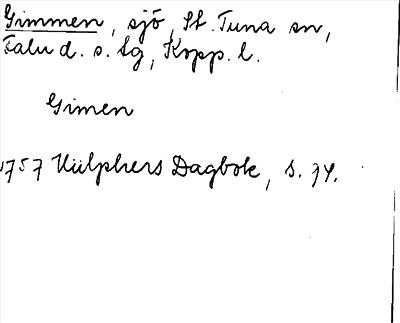 Gimmen, sjö, St. Tuna sn,
Falu d. s. lg, Kopp. l.
Gimen
1757 Hülphers Dagbok, s. 74.